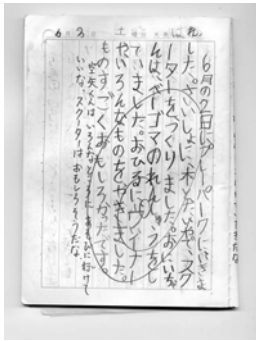 6月3日 土曜日 天気 はれ
6月の2日にプレーパークにいきま
した。さいしょに、木とたいやでスク
ーターをつくりました。おにいちゃ
んは、ベーゴマのれんしゅうをし
ていました。おひるに、ウィンナー
やいろんなものをやきました。
ものすごくおもしろかったです。
空矢くんはいろんなところに あそびに行けて
いいな。スクーターは おもしろそうだな。